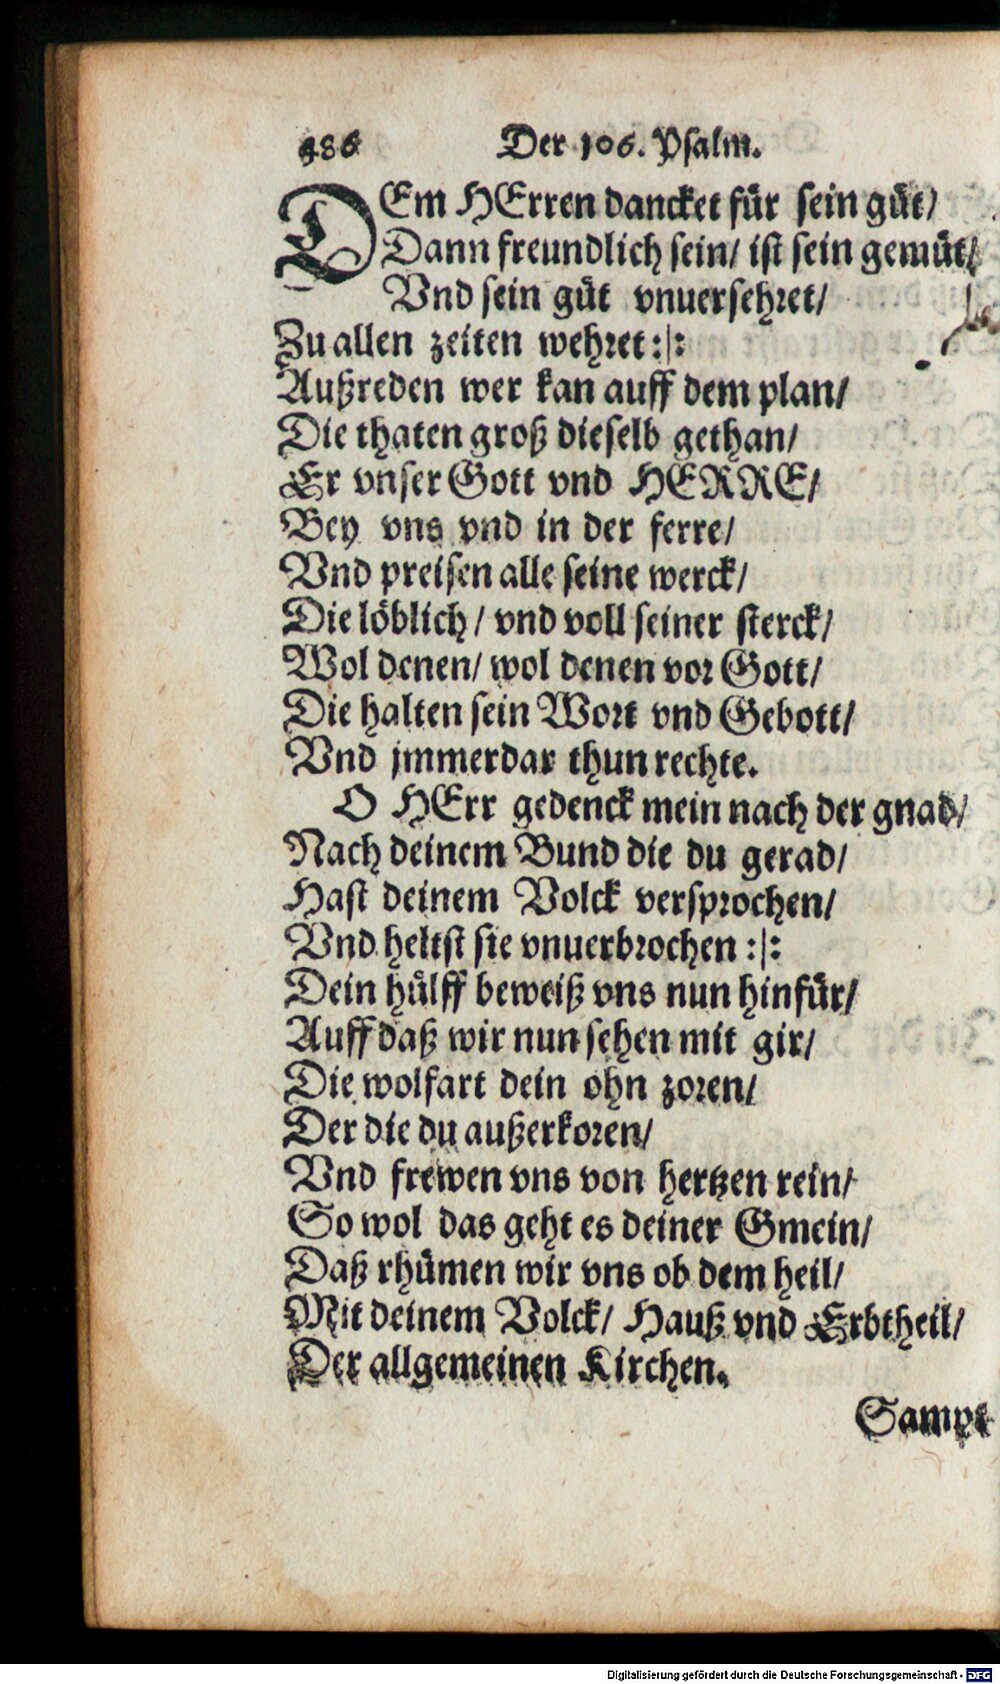 486 Der 106. Psalm.
DEm HErren dancket für sein güt/
Dann freundlich sein/ ist sein gemüt/
Vnd sein güt vnuersehret/
Zu allen zeiten wehret :|:
Außreden wer kan auff dem plan/
Die thaten groß dieselb gethan/
Er vnser Gott vnd HERRE/
Bey vns vnd in der ferre/
Vnd preisen alle seine werck/
Die löblich/ vnd voll seiner sterck/
Wol denen/ wol denen vor Gott/
Die halten sein Wort vnd Gebott/
Vnd jmmerdar thun rechte.
O HErr gedenck mein nach der gnad/
Nach deinem Bund die du gerad/
Hast deinem Volck versprochen/
Vnd heltst sie vnuerbrochen :|:
Dein hülff beweiß vns nun hinfür/
Auff daß wir nun sehen mit gir/
Die wolfart dein ohn zoren/
Der die du außerkoren/
Vnd frewen vns von hertzen rein/
So wol das geht es deiner Gmein/
Daß rhümen wir vns ob dem heil/
Mit deinem Volck/ Hauß vnd Erbtheil/
Der allgemeinen Kirchen.
Sampt
Digitalisierung gefördert durch die Deutsche Forschungsgemeinschaft - DFG